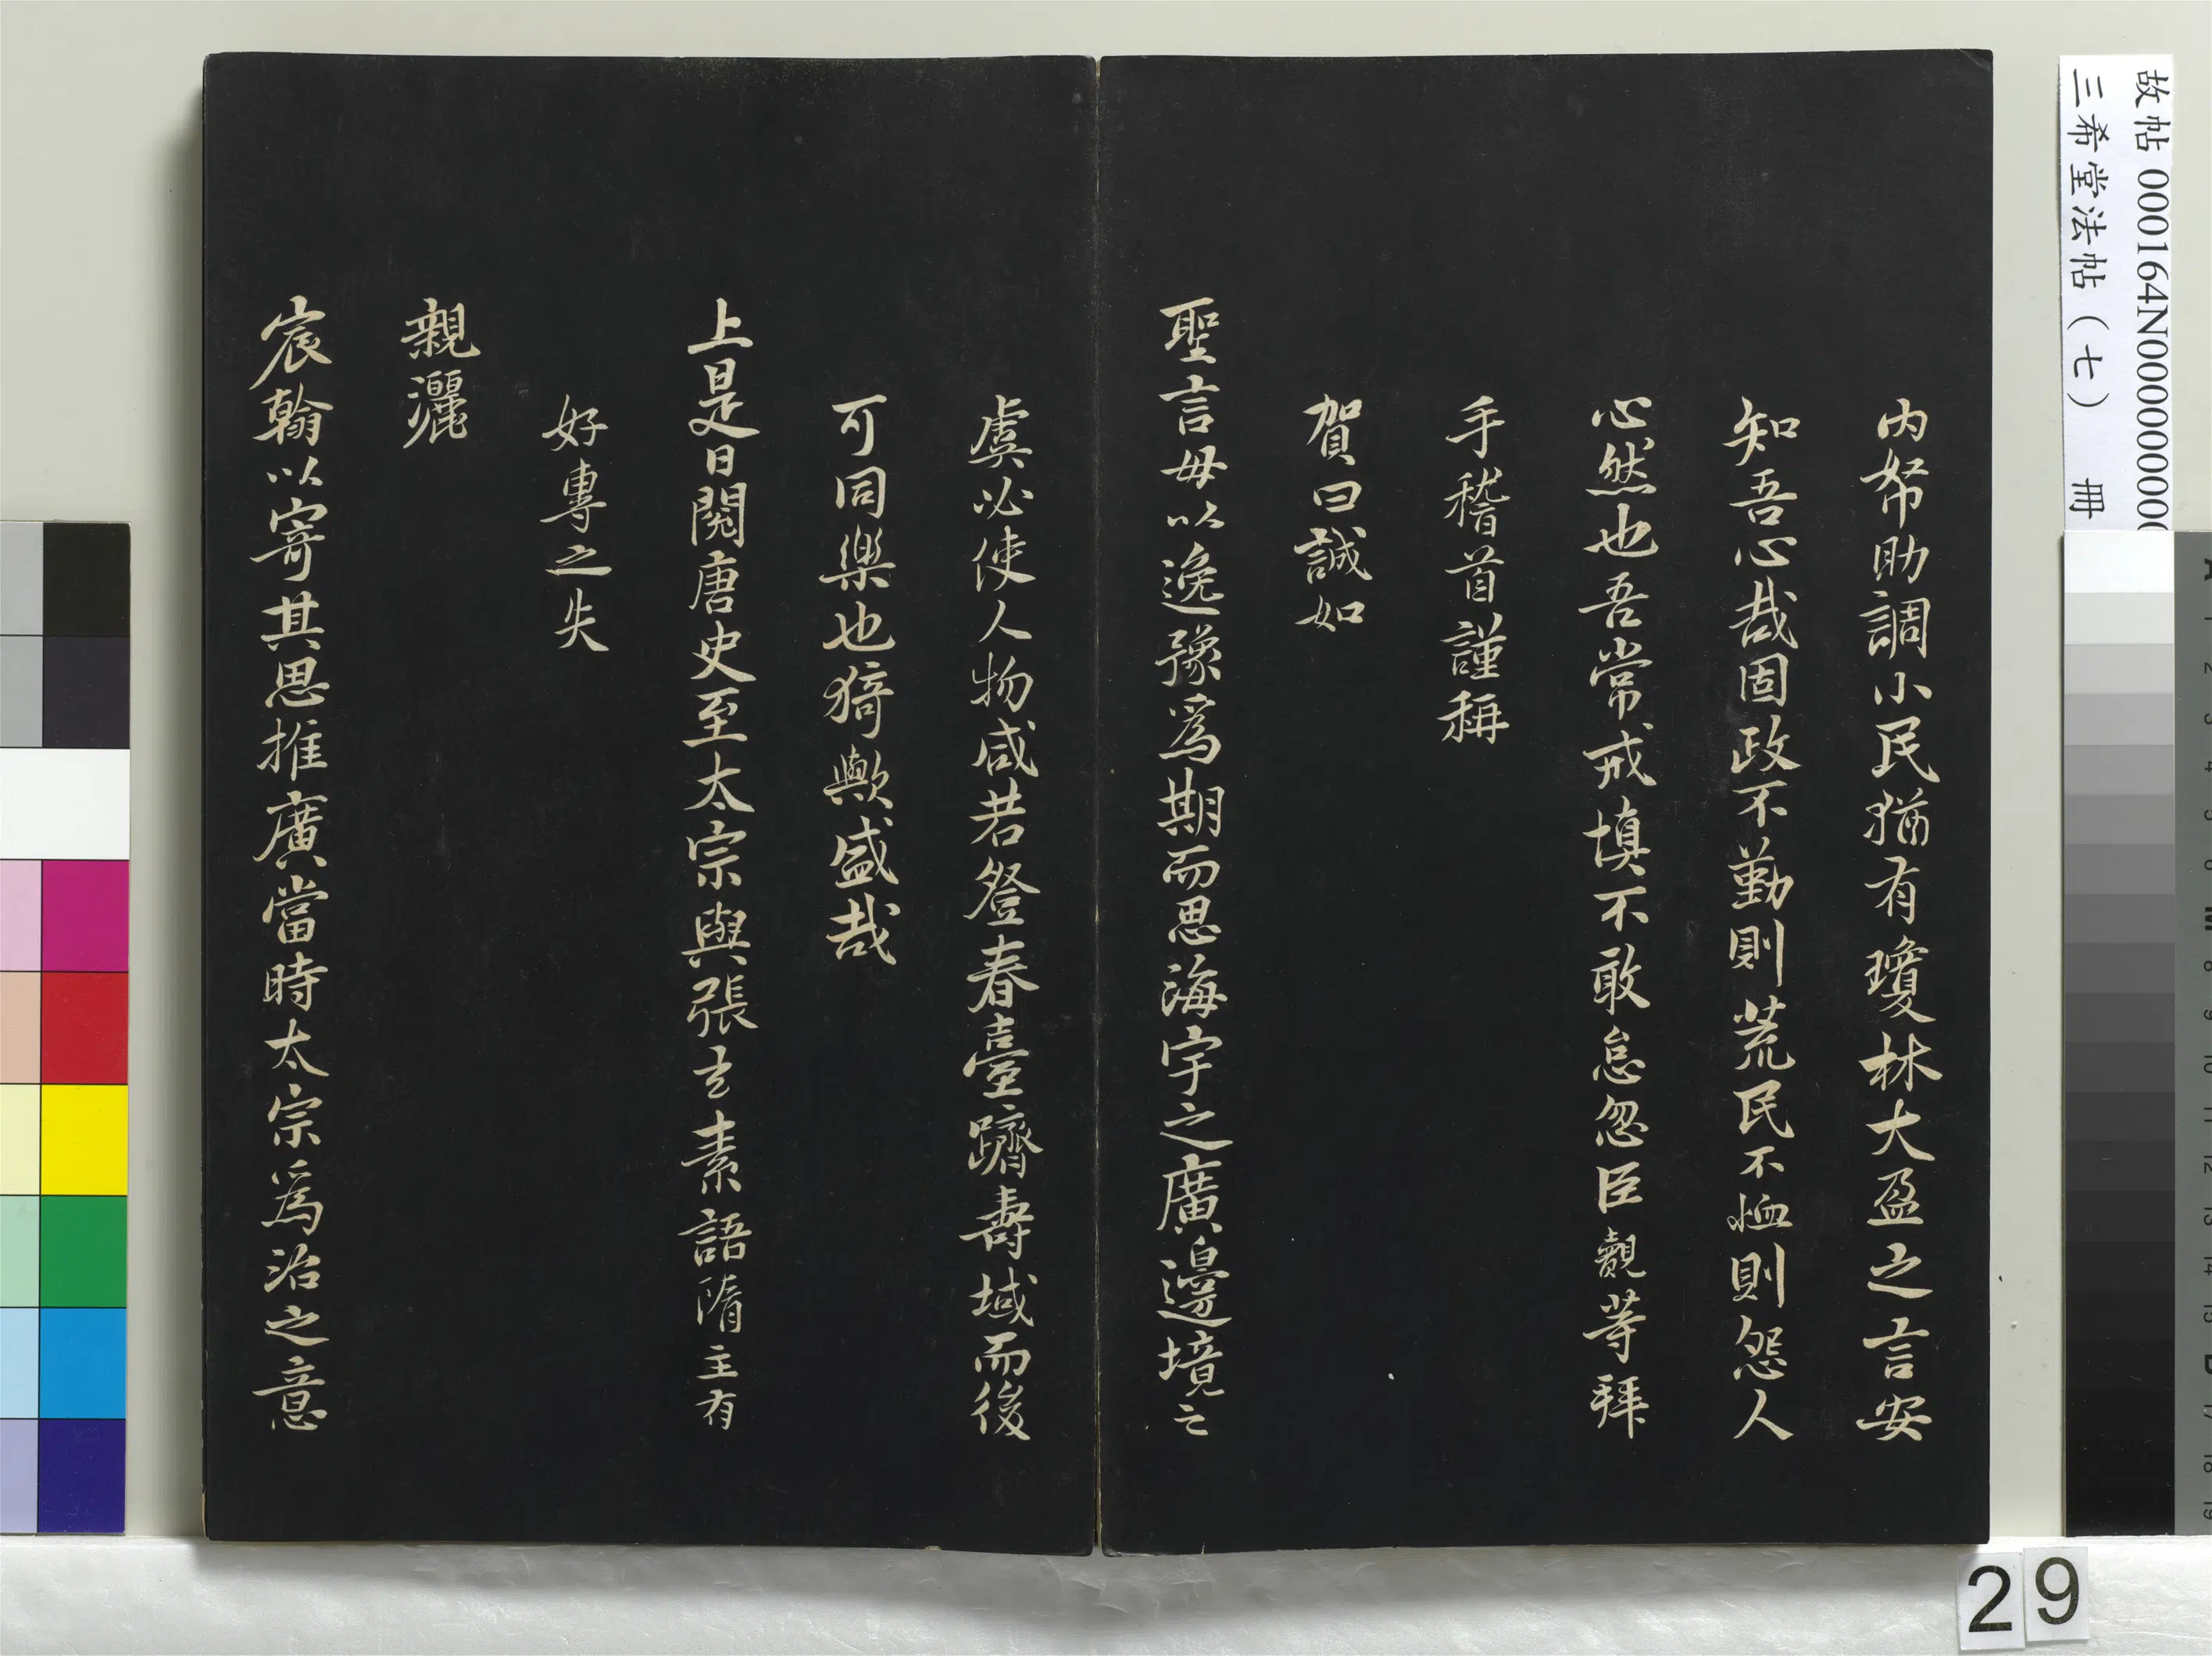 故帖000164N000000000
三希堂法帖（七） 冊
内帑助調小民猶有瓊林大盈之言安
知吾心哉固政不勤則荒民不恤則怨人
心然也吾常戒慎不敢怠忽臣覿等拜
手稽首謹稱
賀曰誠如
聖言毋以逸豫爲期而思海宇之廣邊境之
虞必使人物咸若登春臺躋壽域而後
可同樂也猗歟盛哉
上是日閱唐史至太宗與張玄素語隋主有
好專之失
親灑
宸翰以寄其思推廣當時太宗爲治之意
29